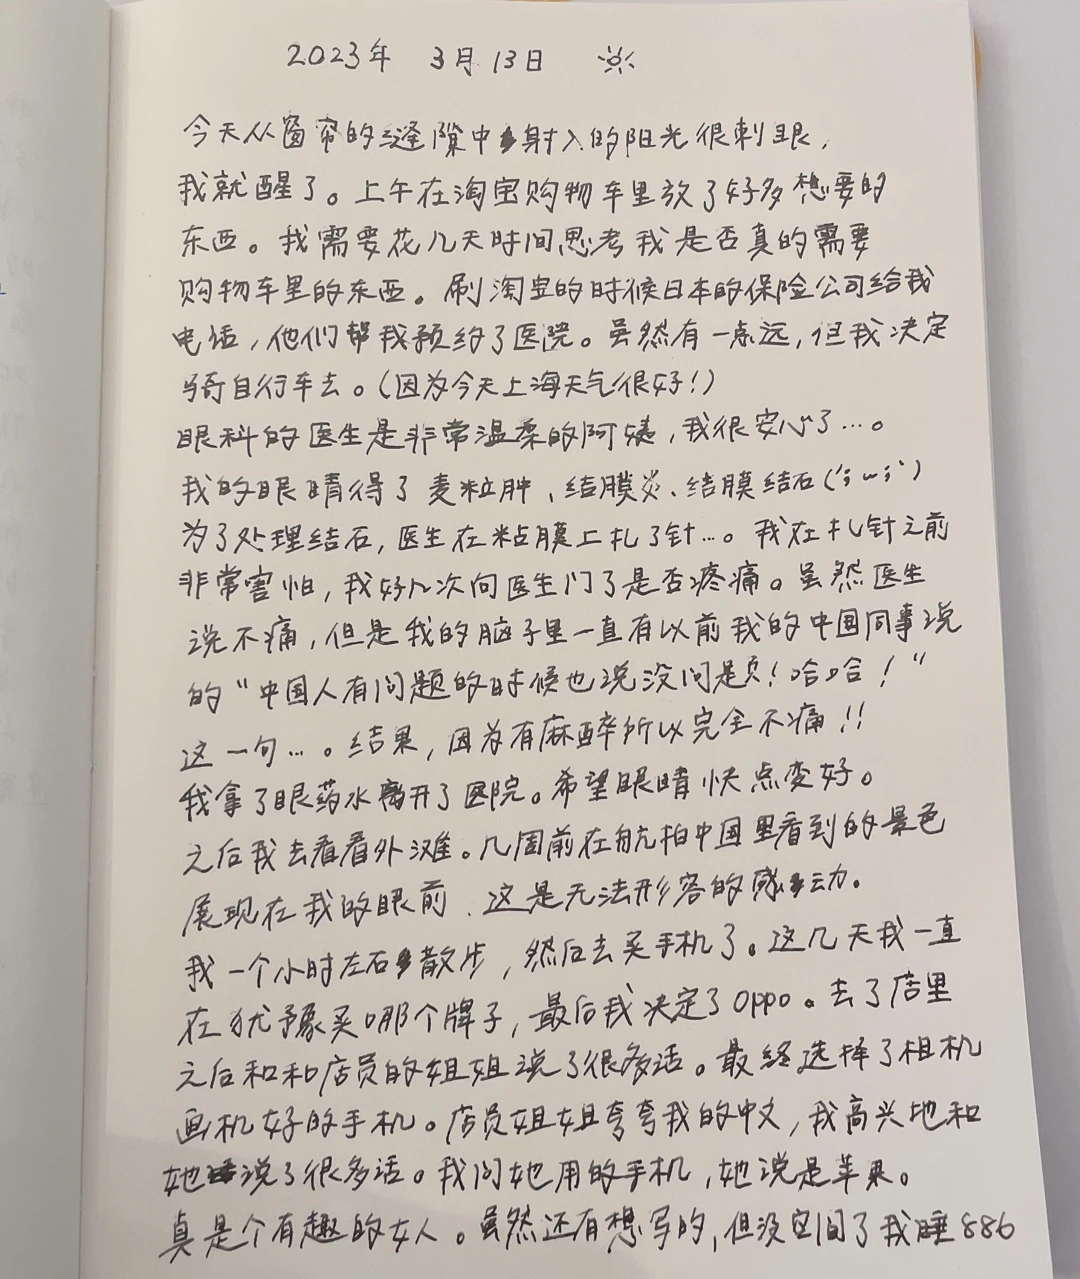 2023年 3月 13日
今天从窗帘的缝隙中射入的阳光很刺眼，
我就醒了。上午在淘宝购物车里放了好多想要的
东西。我需要花几天时间思考我是否真的需要
购物车里的东西。刷淘宝的时候日本的保险公司给我
电话，他们帮我预约了医院。虽然有一点远，但我决定
骑自行车去。（因为今天上海天气很好！）
眼科的医生是非常温柔的阿姨，我很安心了…。
我的眼睛得了麦粒肿、结膜炎、结膜结石（´；ω；｀）
为了处理结石，医生在粘膜上扎了针…。我在扎针之前
非常害怕，我好几次向医生门了是否疼痛。虽然医生
说不痛，但是我的脑子里一直有以前我的中国同事说
的“中国人有问题的时候也说没问题！哈哈！”
这一句…。结果，因为有麻醉所以完全不痛！！
我拿了眼药水离开了医院。希望眼睛快点变好。
之后我去看看外滩。几周前在航拍中国里看到的景色
展现在我的眼前、这是无法形容的感动。
我一个小时左右散步，然后去买手机了。这几天我一直
在犹豫买哪个牌子，最后我决定了OPPO。去了店里
之后和和店员的姐姐说了很多话。最终选择了相机
画机好的手机。店员姐姐夸夸我的中文，我高兴地和
她说了很多话。我问她用的手机，她说是苹果。
真是个有趣的女人。虽然还有想写的，但没空间了我睡886